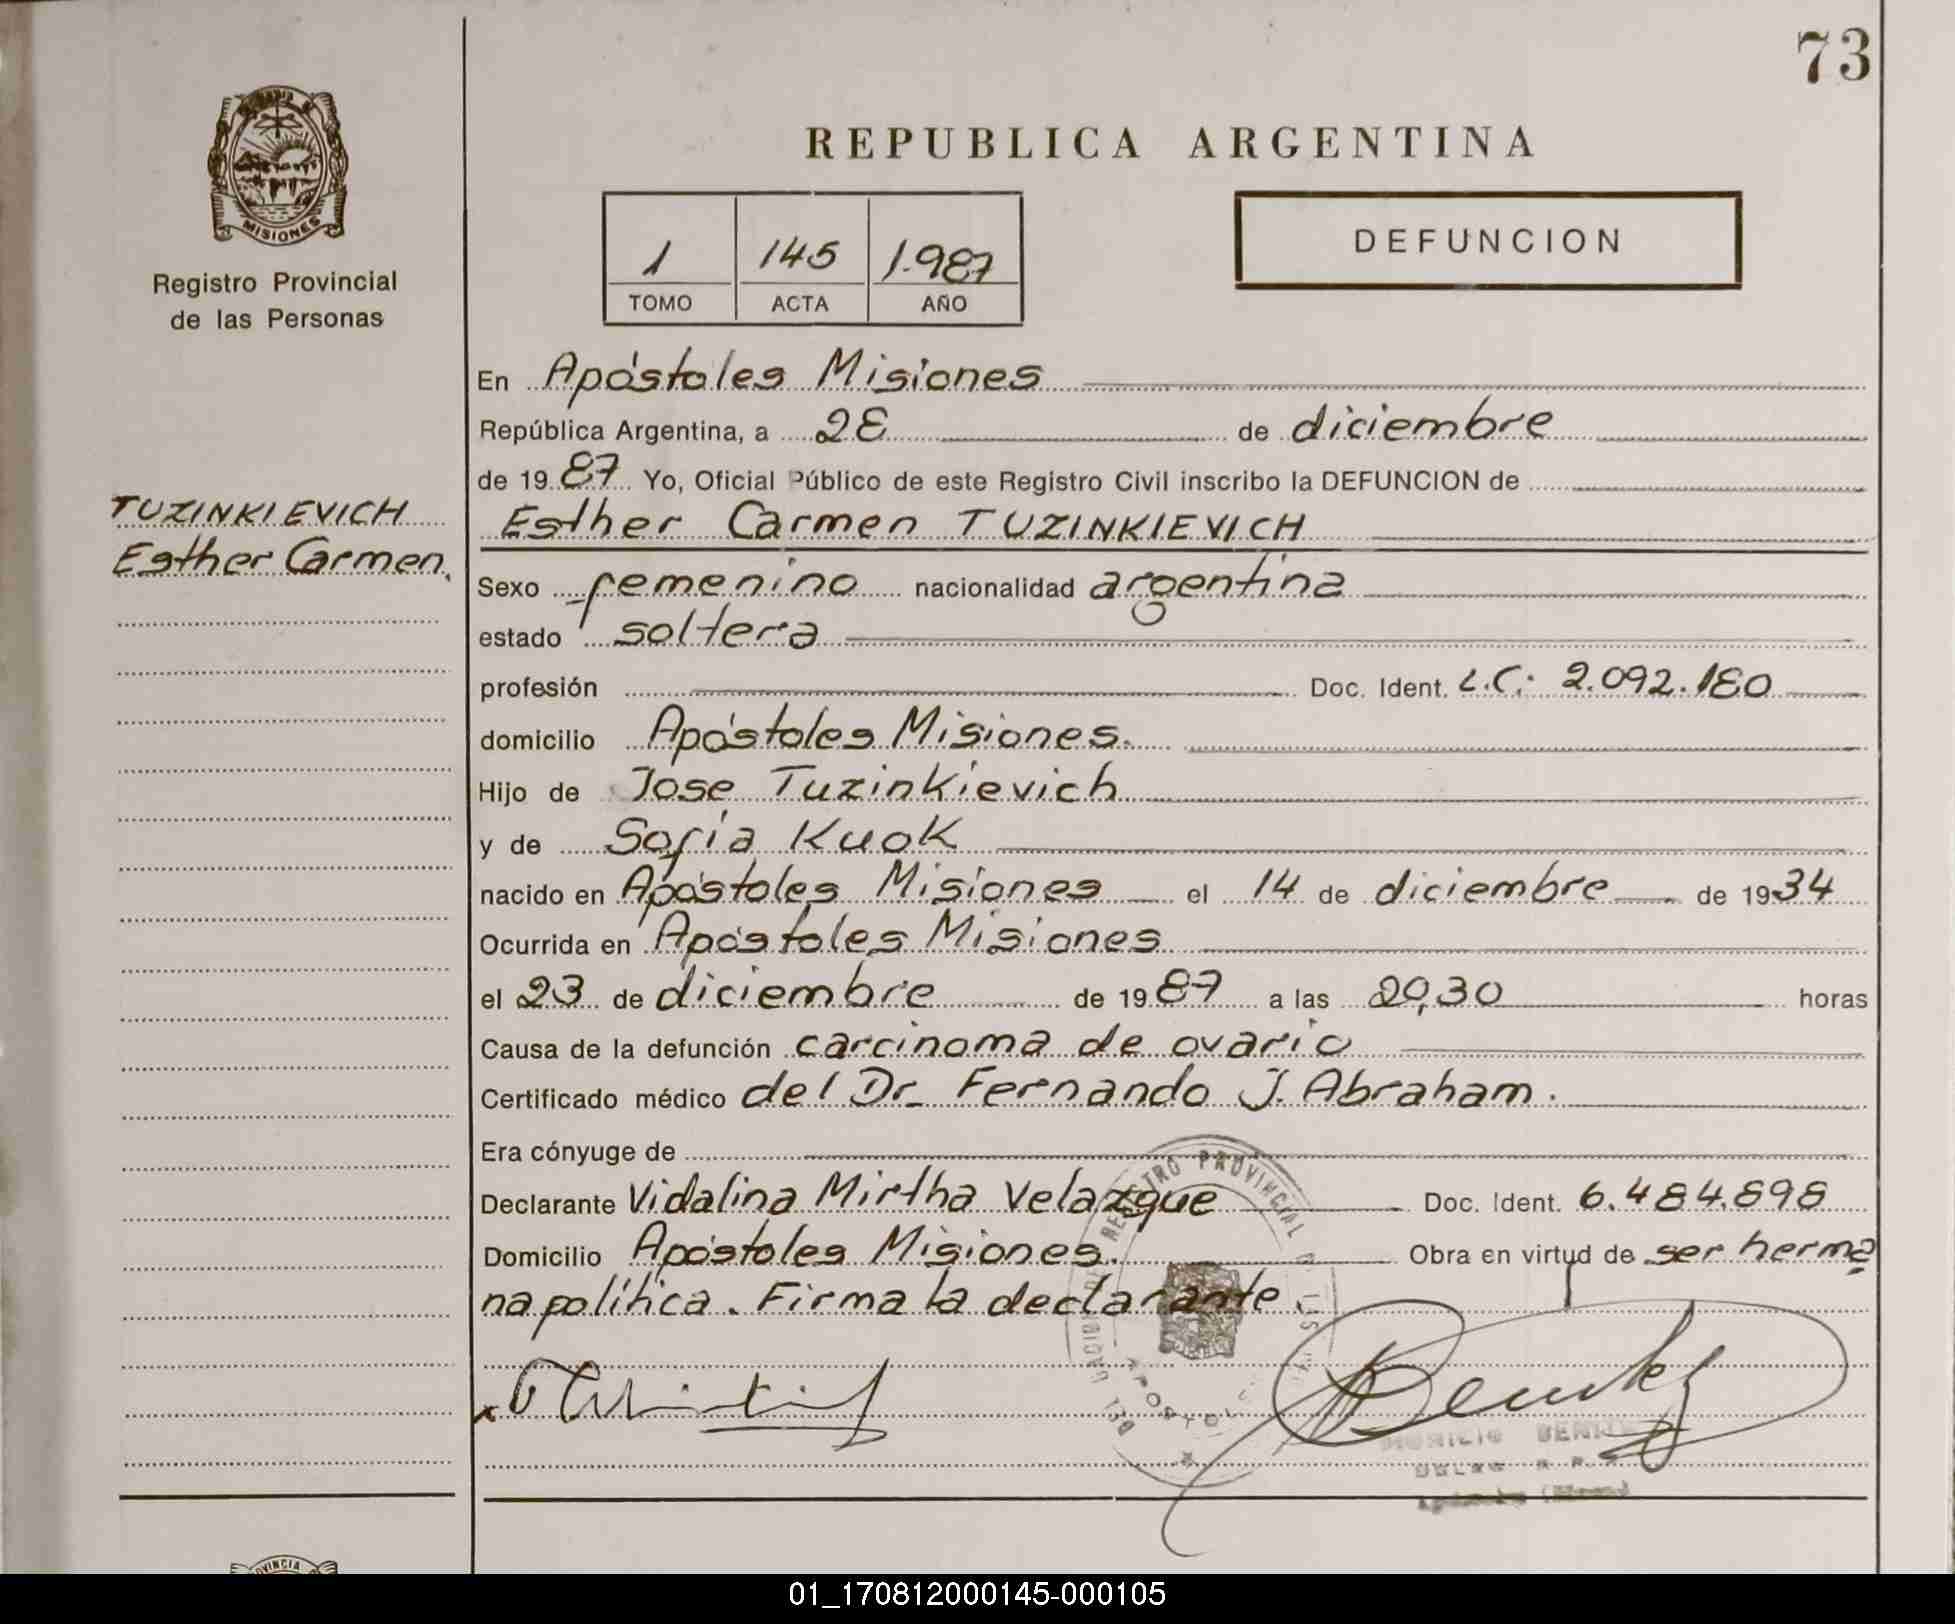 73
MISIONES
Registro Provincial
de las Personas
REPUBLICA ARGENTINA
1 145 1.987
TOMO ACTA AÑO
DEFUNCION
TUZINKIEVICH
Esther Carmen.
En Apóstoles Misiones
República Argentina, a 28 de diciembre
de 1987 Yo, Oficial Público de este Registro Civil inscribo la DEFUNCION de
Esther Carmen TUZINKIEVICH
Sexo femenino nacionalidad argentina
estado soltera
profesión Doc. Ident. L.C: 2.092.180
domicilio Apóstoles Misiones.
Hijo de Jose Tuzinkievich
y de Sofia Kuok
nacido en Apóstoles Misiones el 14 de diciembre de 1934
Ocurrida en Apóstoles Misiones
el 23 de diciembre de 1987 a las 20,30 horas
Causa de la defunción carcinoma de ovario
Certificado médico del Dr. Fernando J. Abraham.
Era cónyuge de
Declarante Vidalina Mirtha Velazque Doc. Ident. 6.484.898
Domicilio Apóstoles Misiones. Obra en virtud de ser herma
na política. Firma la declarante
REGISTRO PROVINCIAL
01_170812000145-000105